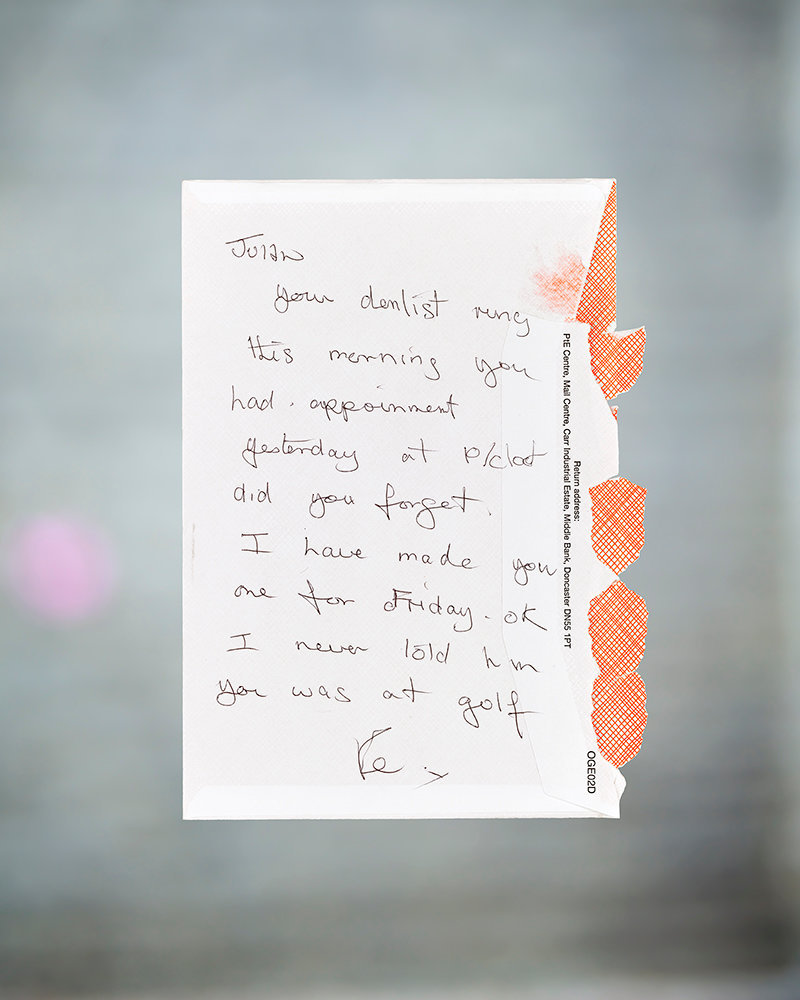 Julian
Your dentist rung
this morning you
had. appoinment
yesterday at
did you forget.
I have made you
one for Friday. OK
I never told him
you was at golf
Return address:
PtE Centre, Mail Centre, Carr Industrial Estate, Middle Bank, Doncaster DN55 1PT
OGE02D